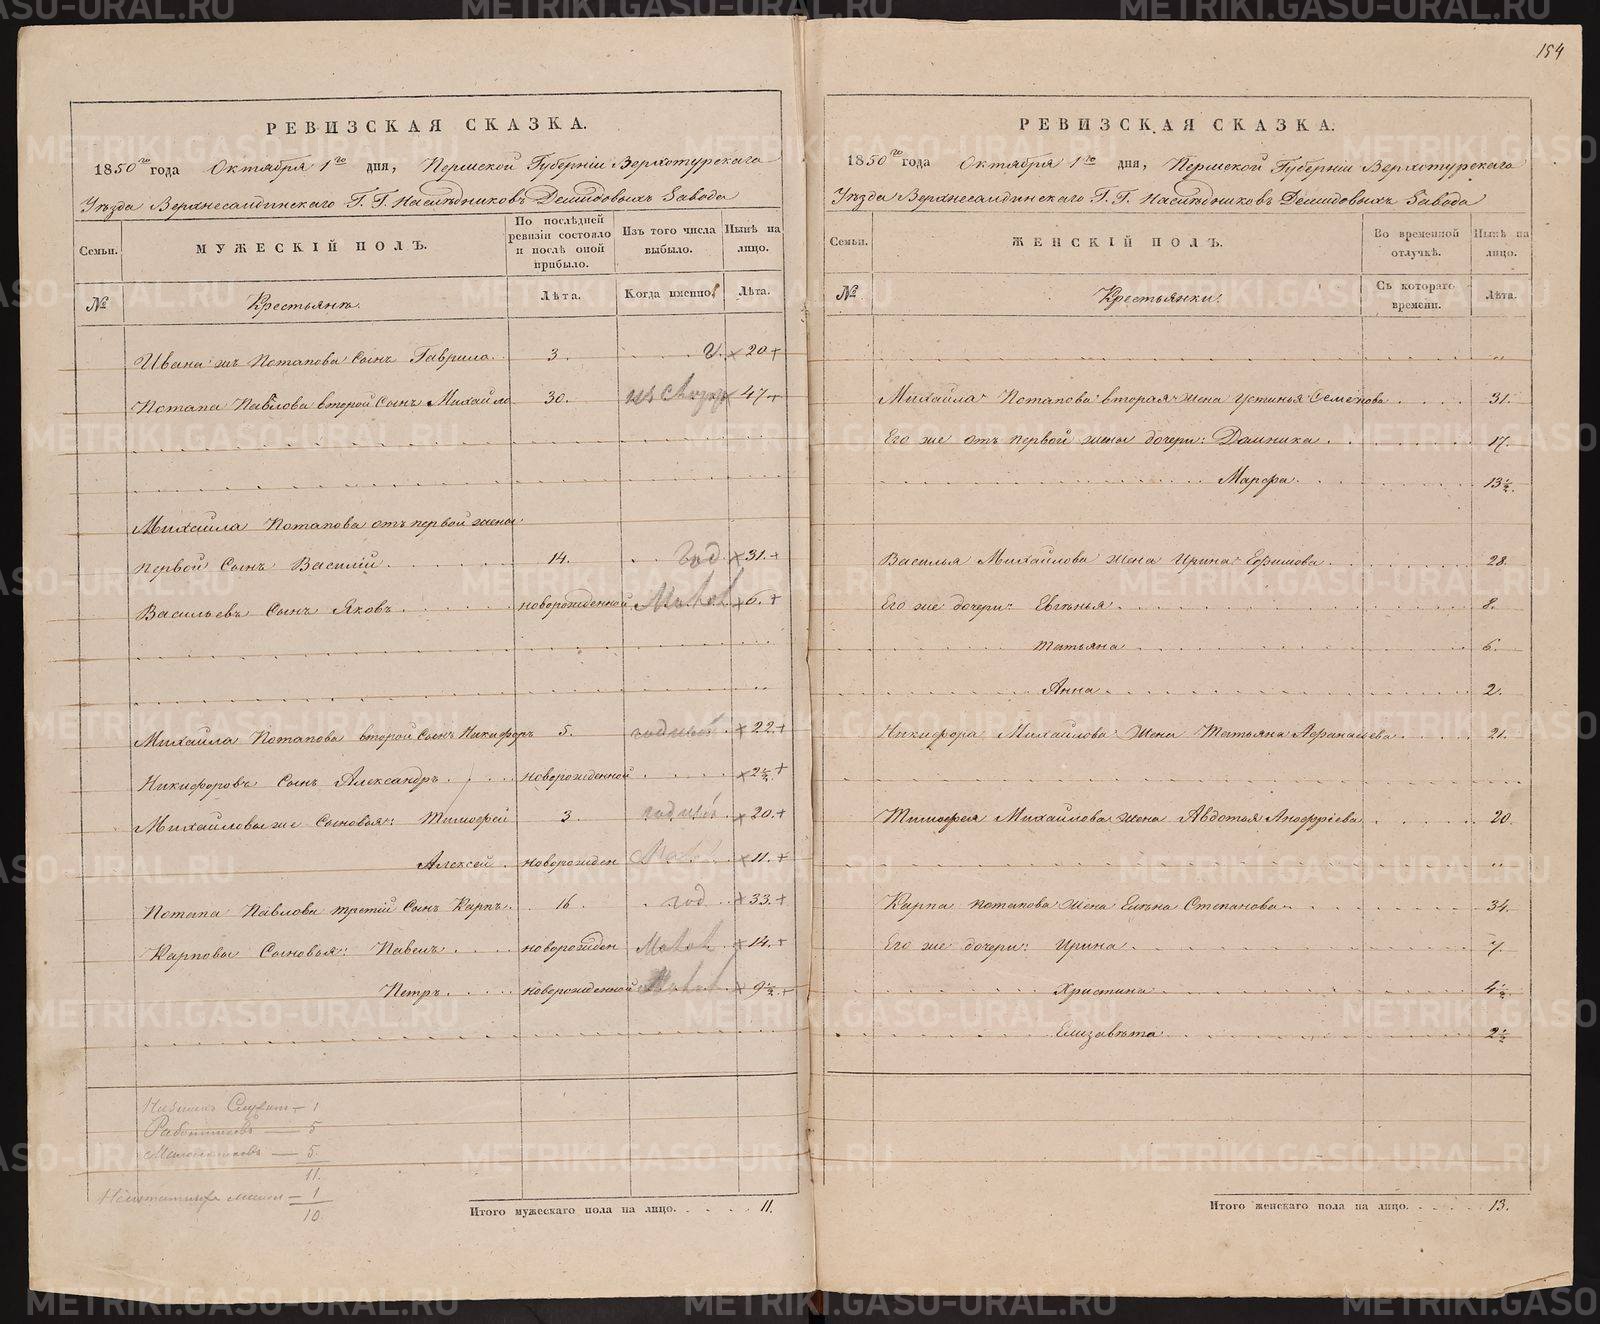 154
РЕВИЗСКАЯ СКАЗКА.
1850го года Октября 1го дня, Пермской Губерніи Верхотурскаго
Уѣзда Верхнесалдинскаго Г.Г. Наслѣдниковъ Демидовыхъ Завода
Семьи. МУЖЕСКІЙ ПОЛЪ. По послѣдней ревизіи состояло и послѣ оной прибыло. Изъ того числа выбыло. Нынѣ на лицо.
№ Крестьянъ. Лѣта. Когда именно. Лѣта.
Ивана жъ Потапова Сынъ Гаврило 3. 20
Потапа Павлова второй Сынъ Михайло 30. 47
Михайла Потапова отъ первой жены
первой Сынъ Василій 14. год 31.
Васильевъ Сынъ Яковъ новорожденной 6.
Михайла Потапова второй Сынъ Никифоръ 5. годный 22
Никифоровъ Сынъ Александръ новорожденной 2½
Михайловы же Сыновья: Тимофей 3. годный 20.
Алексей новорожден 11.
Потапа Павлова третій Сынъ Карпъ 16. год 33.
Карповы Сыновья: Павелъ новорожден 14
Петръ новорожденной 9½
Служит — 1
Работниковъ — 5
— 5.
11.
— 1
10.
Итого мужескаго пола на лицо. 11.
РЕВИЗСКАЯ СКАЗКА.
1850го года Октября 1го дня, Пермской Губерніи Верхотурскаго
Уѣзда Верхнесалдинскаго Г.Г. Наслѣдниковъ Демидовыхъ Завода
Семьи. ЖЕНСКІЙ ПОЛЪ. Во временной отлучкѣ. Нынѣ на лицо.
№ Крестьянки. Съ котораго времени. Лѣта.
Михайла Потапова вторая жена Устинья Семенова 31.
Его же отъ первой жены дочери: Домника 17.
Марфа 13½.
Василья Михайлова жена Ирина Ефимова 28.
Его же дочери: Евгенья 8.
Татьяна 6.
Анна 2.
Никифора Михайлова Жена Татьяна Афанасьева 21.
Тимофея Михайлова жена Авдотья Анофріева 20.
Карпа Потапова Жена Елена Степанова 34.
Его же дочери: Ирина 7.
Христина 4½
Елизавѣта 2½
Итого женскаго пола на лицо. 13.
METRIKI.GASO-URAL.RU